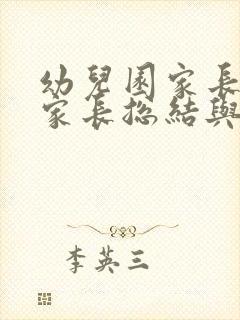 幼兒園家長
家長總結與
李英三